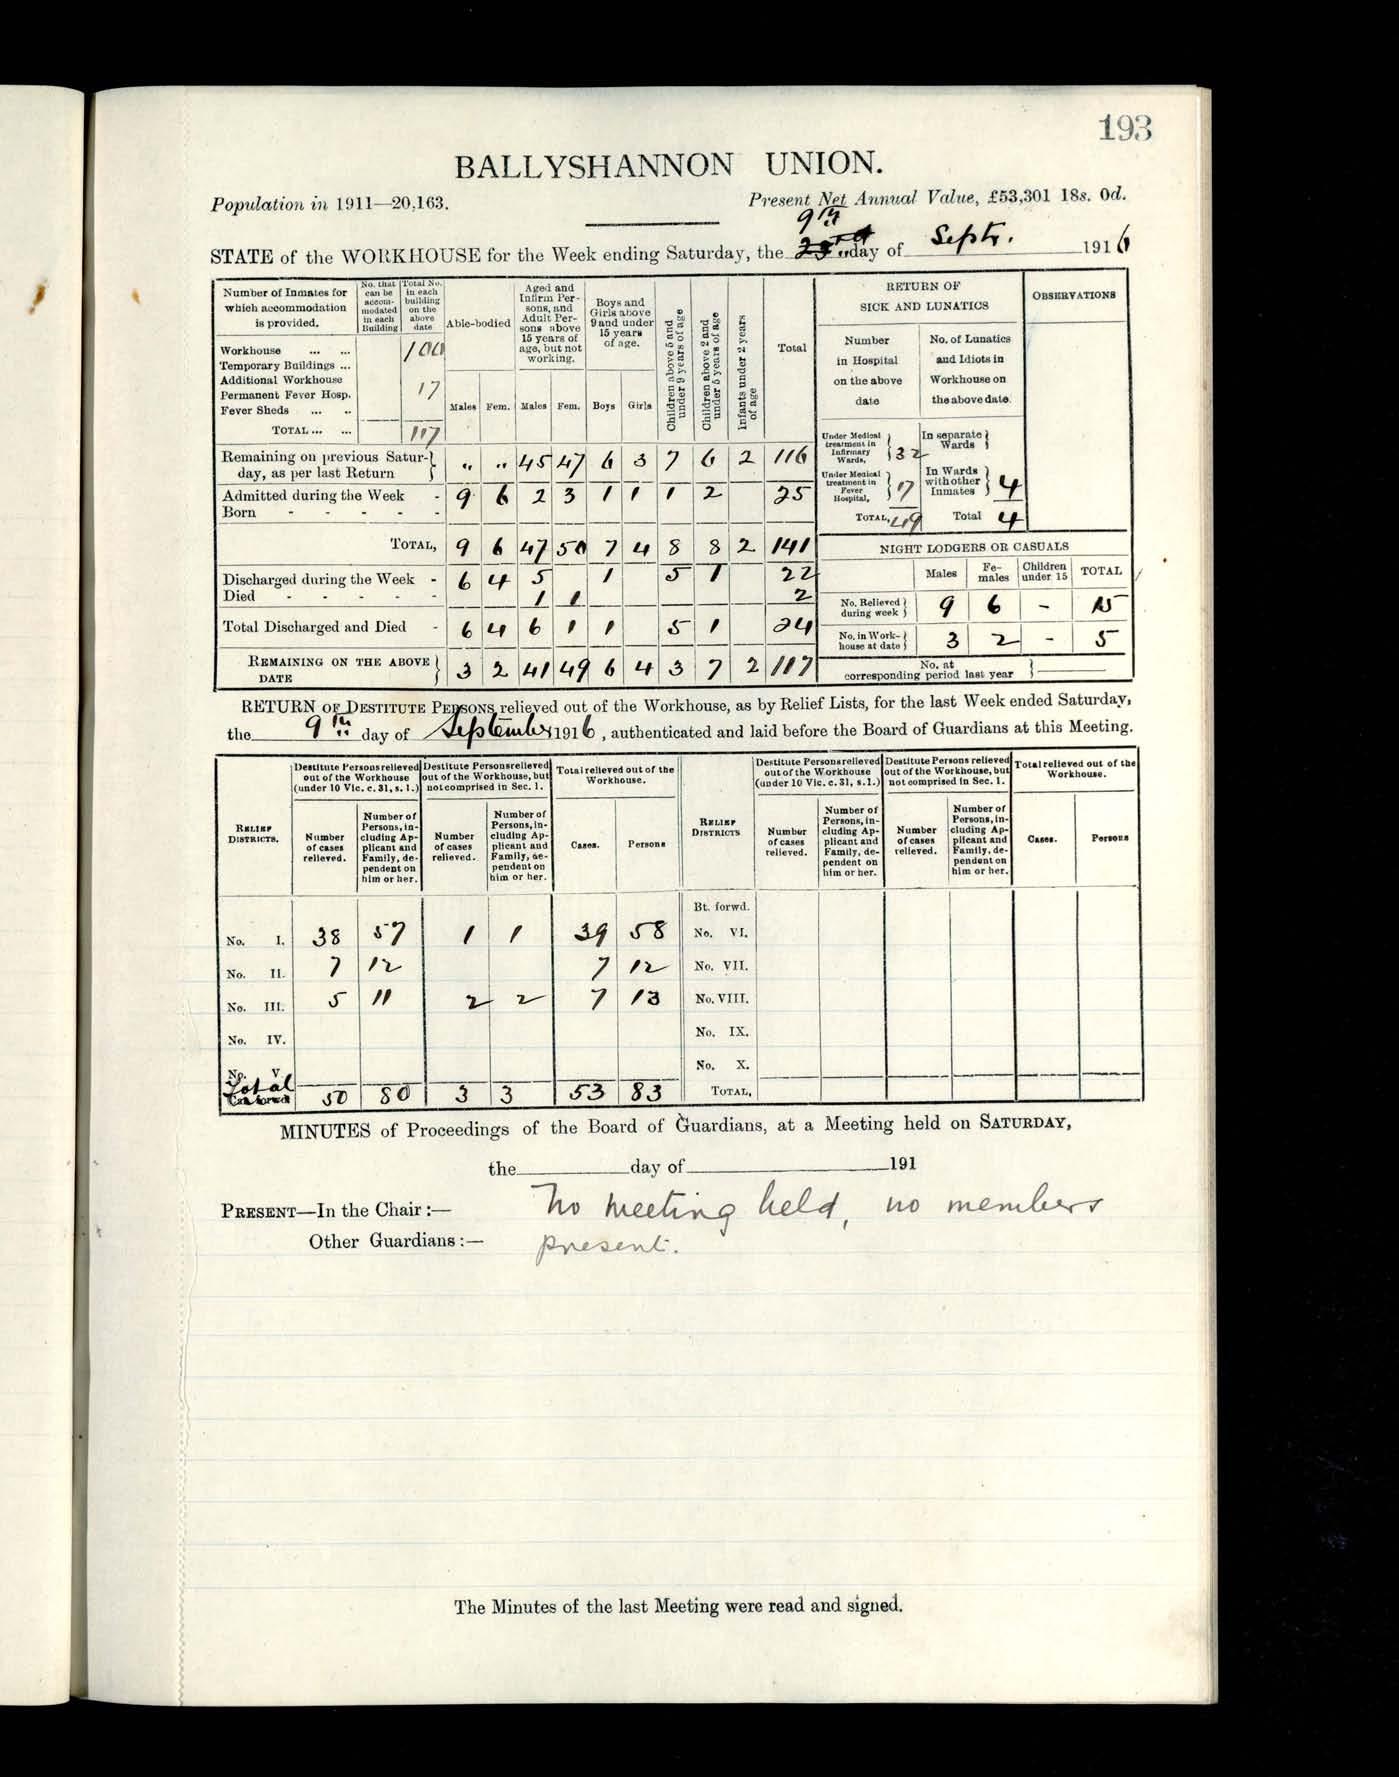 193
BALLYSHANNON UNION.
Population in 1911—20,163. Present Net Annual Value, £53,301 18s. 0d.
9th
STATE of the WORKHOUSE for the Week ending Saturday, the day of Septr. 1916
Number of Inmates for which accommodation is provided.
No. that can be accommodated in each Building
Total No. in each building on the above date
Able-bodied
Aged and Infirm Persons, and Adult Persons above 15 years of age, but not working.
Boys and Girls above 9 and under 15 years of age.
Children above 5 and under 9 years of age
Children above 2 and under 5 years of age
Infants under 2 years of age
Total
Males Fem. Males Fem. Boys Girls
Workhouse ... ... 100
Temporary Buildings ...
Additional Workhouse
Permanent Fever Hosp. 17
Fever Sheds ... ..
TOTAL ... ... 117
Remaining on previous Saturday, as per last Return } „ „ 45 47 6 3 7 6 2 116
Admitted during the Week - 9 6 2 3 1 1 1 2 25
Born - - - - -
TOTAL, 9 6 47 50 7 4 8 8 2 141
Discharged during the Week - 6 4 5 1 5 1 22
Died - - - - - 1 1 2
Total Discharged and Died - 6 4 6 1 1 5 1 24
REMAINING ON THE ABOVE DATE } 3 2 41 49 6 4 3 7 2 117
RETURN OF SICK AND LUNATICS
OBSERVATIONS
Number in Hospital on the above date
No. of Lunatics and Idiots in Workhouse on the above date.
Under Medical treatment in Infirmary Wards, } 32
In separate Wards }
Under Medical treatment in Fever Hospital, } 17
In Wards with other Inmates } 4
TOTAL, 49 Total 4
NIGHT LODGERS OR CASUALS
Males Females Children under 15 TOTAL
No. Relieved during week } 9 6 - 15
No. in Workhouse at date } 3 2 - 5
No. at corresponding period last year }
RETURN OF DESTITUTE PERSONS relieved out of the Workhouse, as by Relief Lists, for the last Week ended Saturday,
the 9th day of September 1916, authenticated and laid before the Board of Guardians at this Meeting.
RELIEF DISTRICTS.
Destitute Persons relieved out of the Workhouse (under 10 Vic. c. 31, s. 1.)
Destitute Persons relieved out of the Workhouse, but not comprised in Sec. 1.
Total relieved out of the Workhouse.
Number of cases relieved.
Number of Persons, including Applicant and Family, dependent on him or her.
Number of cases relieved.
Number of Persons, including Applicant and Family, dependent on him or her.
Cases. Persons
No. I. 38 57 1 1 39 58
No. II. 7 12 7 12
No. III. 5 11 2 2 7 13
No. IV.
No. V.
Total 50 80 3 3 53 83
RELIEF DISTRICTS
Destitute Persons relieved out of the Workhouse (under 10 Vic. c. 31, s. 1.)
Destitute Persons relieved out of the Workhouse, but not comprised in Sec. 1.
Total relieved out of the Workhouse.
Number of cases relieved.
Number of Persons, including Applicant and Family, dependent on him or her.
Number of cases relieved.
Number of Persons, including Applicant and Family, dependent on him or her.
Cases. Persons
Bt. forwd.
No. VI.
No. VII.
No. VIII.
No. IX.
No. X.
TOTAL,
MINUTES of Proceedings of the Board of Guardians, at a Meeting held on SATURDAY,
the day of 191
PRESENT—In the Chair :— No meeting held, no members
Other Guardians :— present.
The Minutes of the last Meeting were read and signed.